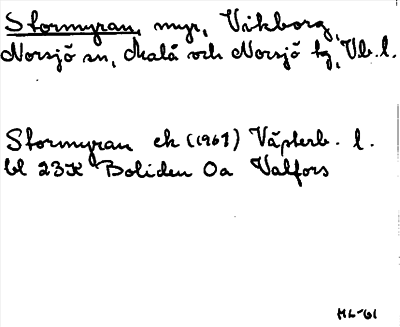 Stormyran, myr, Vikborg,
Norsjö sn, Malå och Norsjö tg, Vb.l.
Stormyran ek (1961) Västerb. l.
bl 23K Boliden 0a Valfors
HL-61